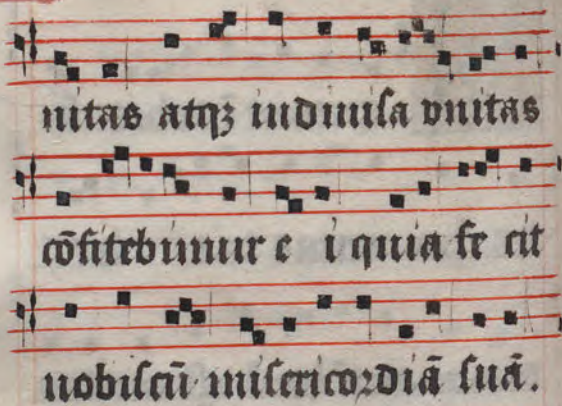 nitas atqꝫ indiuiſa vnitas
cōfitebimur e i quia fe cit
nobiſcū miſericordiā ſuā.